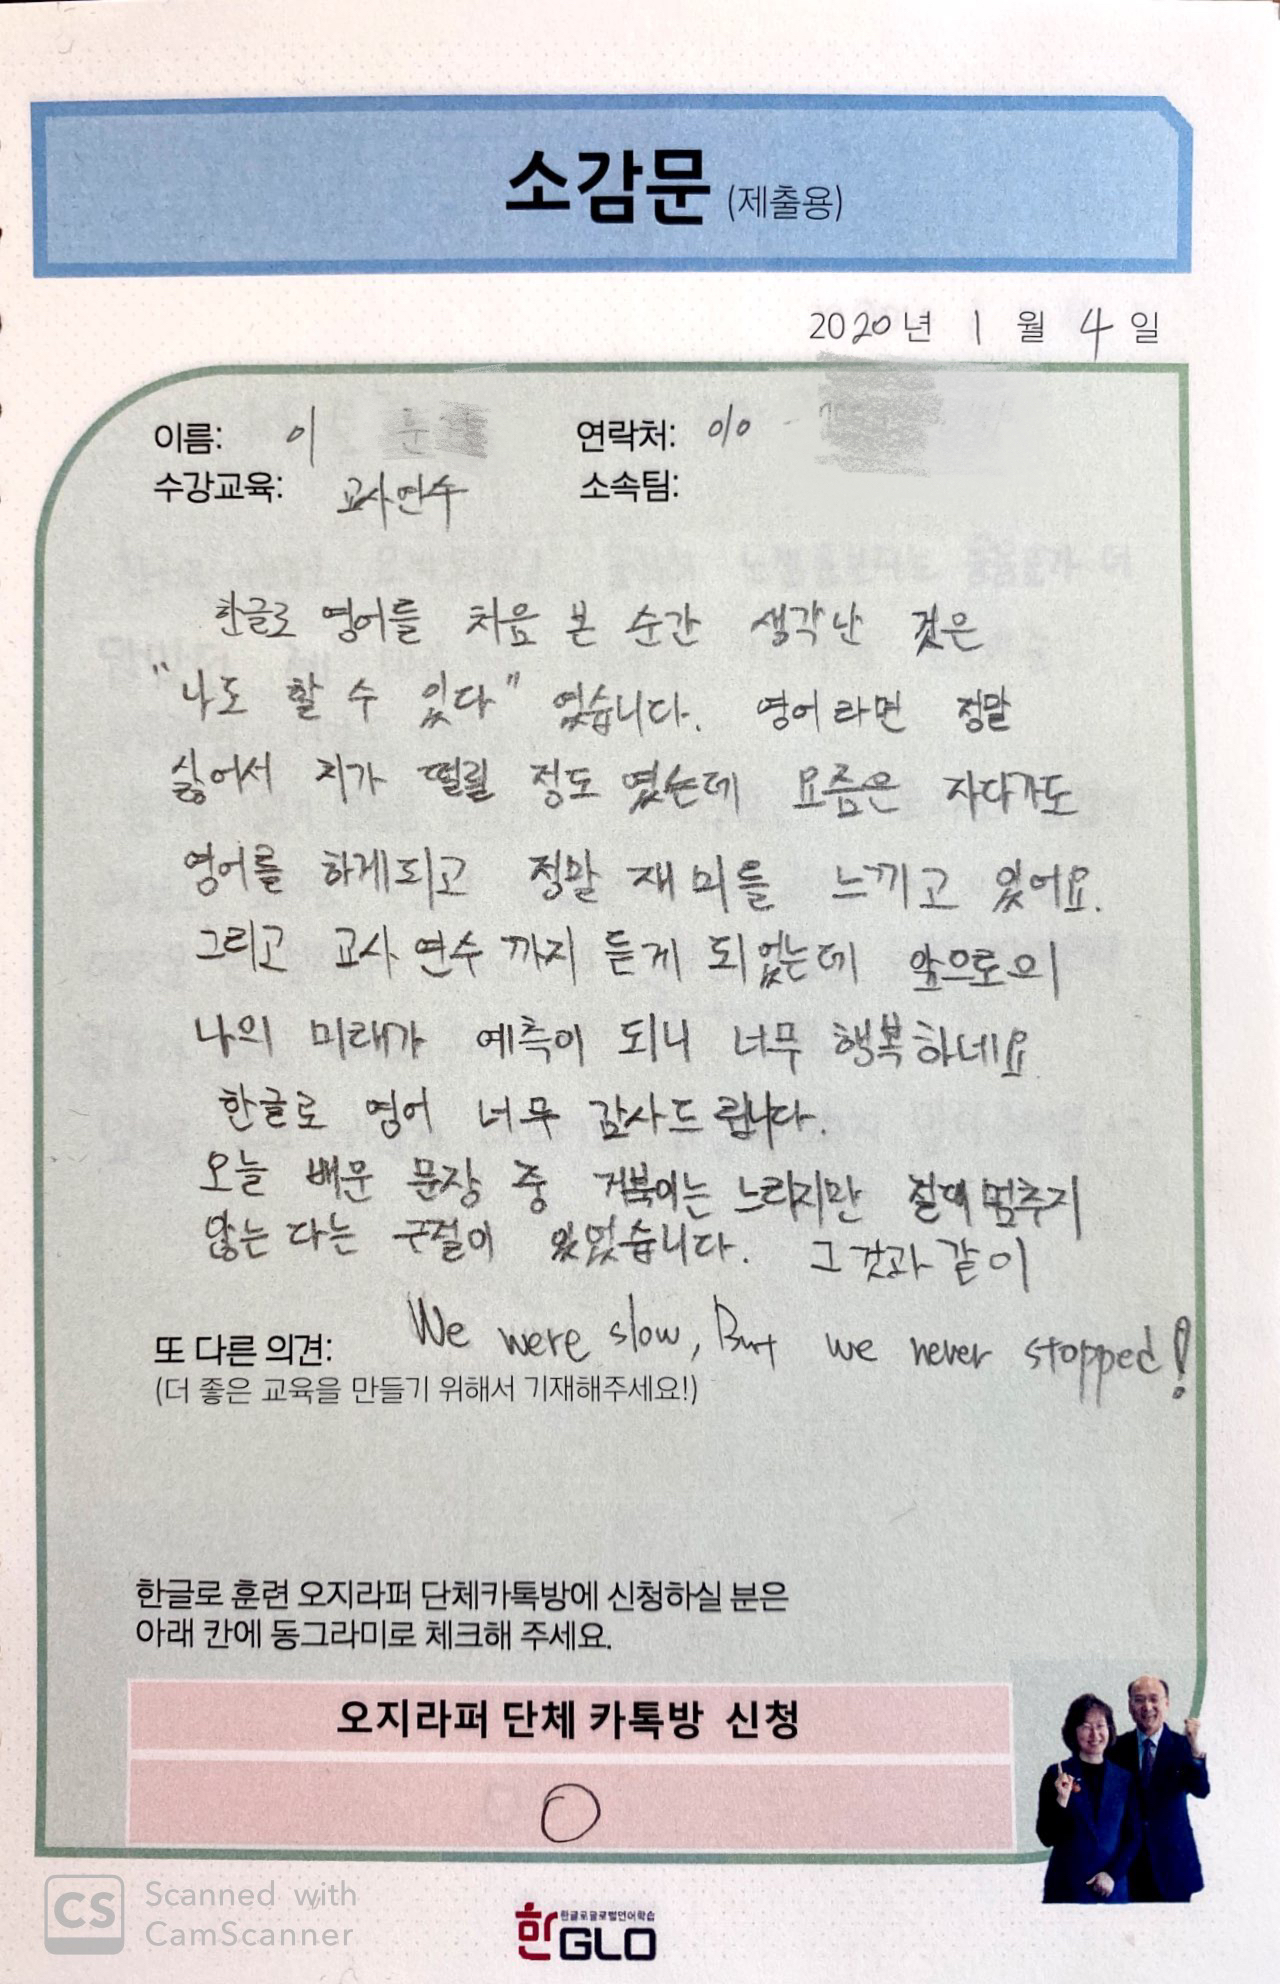 소감문 (제출용)
2020년 1월 4일
이름: 이 연락처: 010 -
수강교육: 교사연수 소속팀:
한글로 영어를 처음 본 순간 생각난 것은
"나도 할 수 있다" 였습니다. 영어라면 정말
싫어서 치가 떨릴 정도 였는데 요즘은 자다가도
영어를 하게되고 정말 재미를 느끼고 있어요.
그리고 교사 연수 까지 듣게 되었는데 앞으로의
나의 미래가 예측이 되니 너무 행복하네요
한글로 영어 너무 감사드립니다.
오늘 배운 문장 중 거북이는 느리지만 절대 멈추지
않는 다는 구절이 있었습니다. 그것과 같이
We were slow, But we never stopped!
또 다른 의견:
(더 좋은 교육을 만들기 위해서 기재해주세요!)
한글로 훈련 오지라퍼 단체카톡방에 신청하실 분은
아래 칸에 동그라미로 체크해 주세요.
오지라퍼 단체 카톡방 신청
CS Scanned with
CamScanner
한글로글로벌언어학습
한GLO